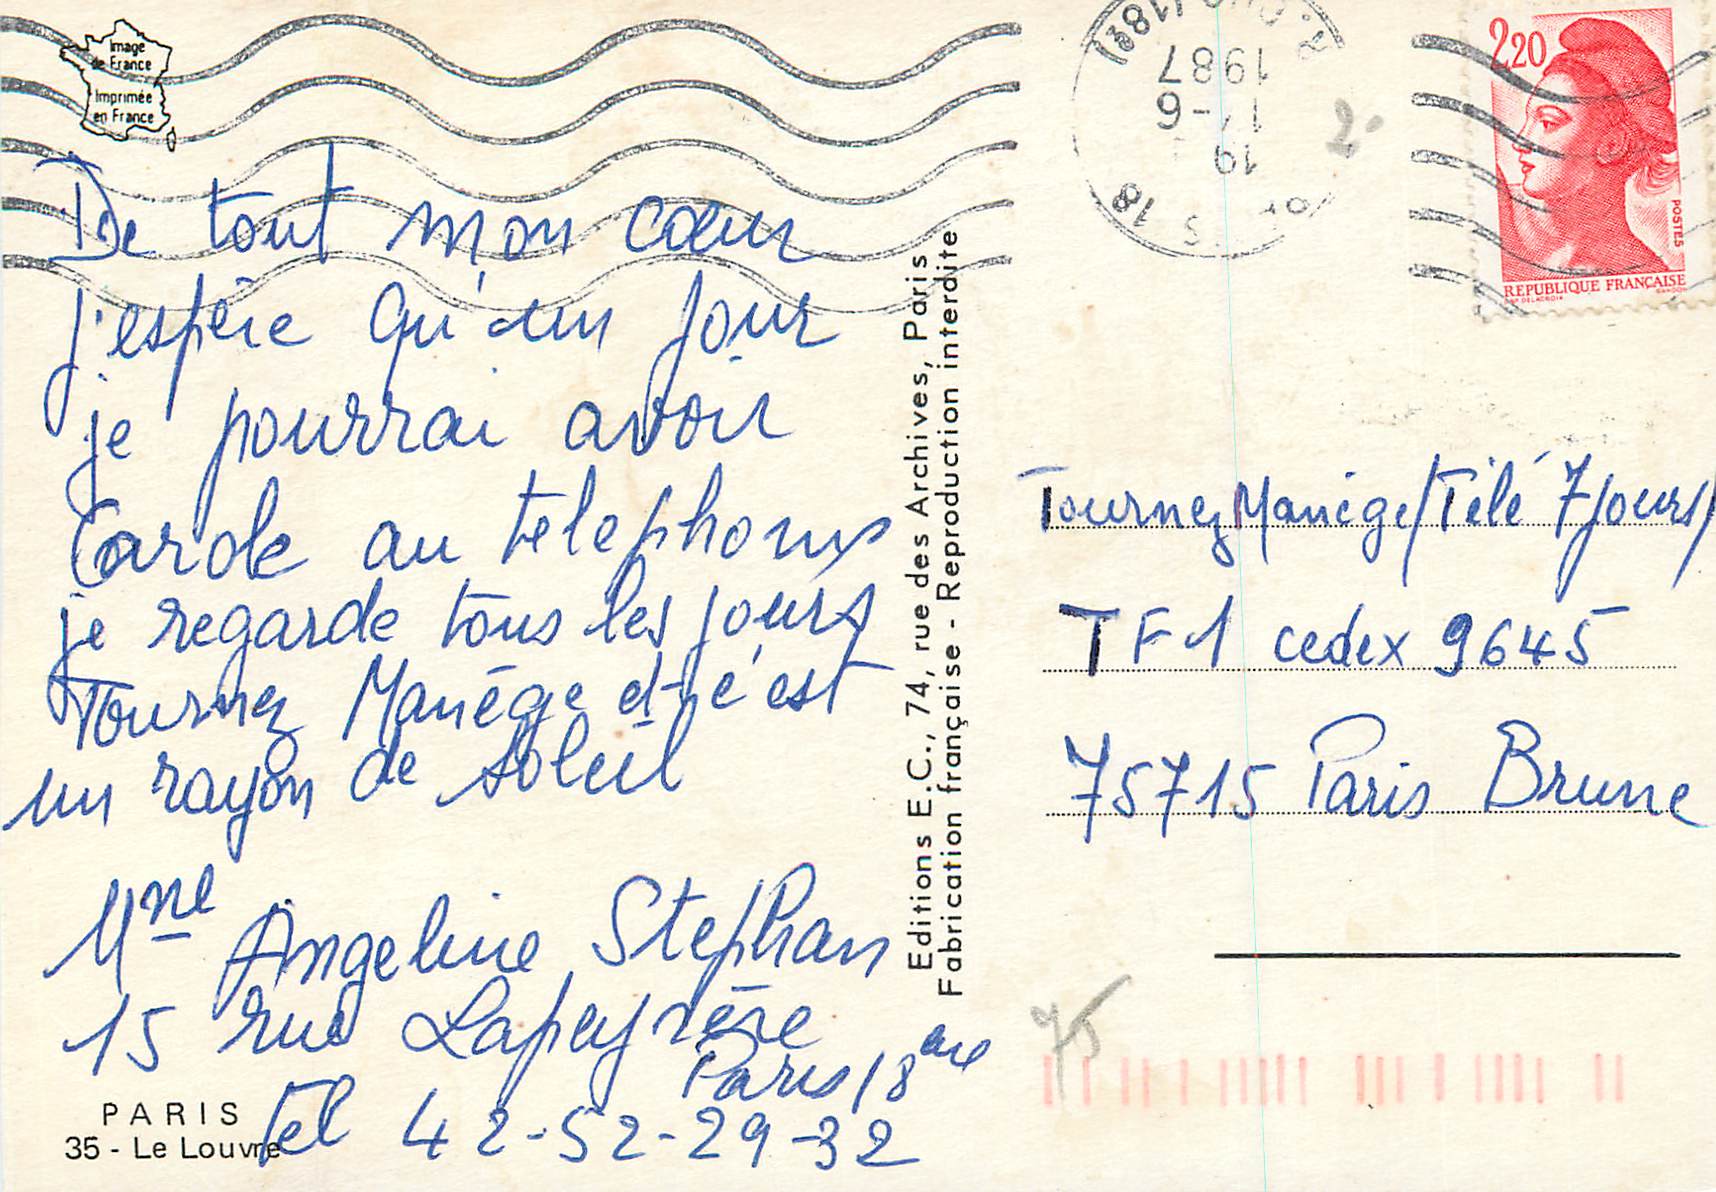 Image
de France
Imprimée
en France
De tout mon cœur
j'espère qu'un jour
je pourrai avoir
Carole au telephone
je regarde tous les jours
Tournez Manége et c'est
un rayon de soleil
Mme Angeline Stephan
15 rue Lapeyrère
Paris 18 eme
Tel 42-52-29-32
PARIS
35 - Le Louvre
Editions E.C., 74, rue des Archives, Paris
Fabrication française - Reproduction interdite
19
17-6
1987
18
2,20
POSTES
REPUBLIQUE FRANÇAISE
Tournez Manége/Télé 7 Jours/
TF1 cedex 9645
75715 Paris Brune
75